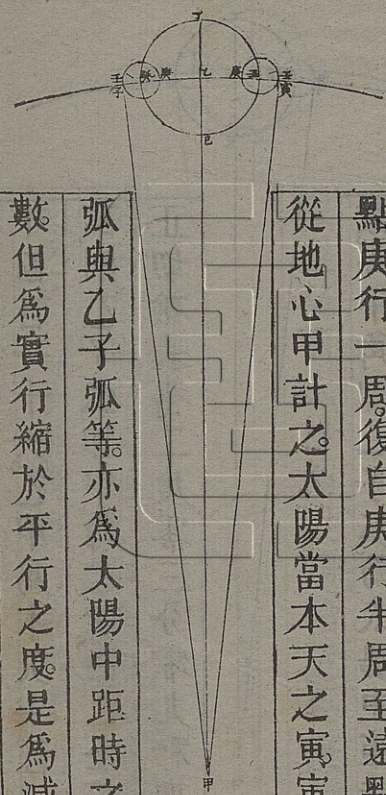 丁
壬 子 癸 庚 乙 庚 壬 寅
己
甲
點庚行一周。復自庚行半周至遠點
從地心甲計之。太陽當本天之寅。寅
弧與乙子弧等。亦為太陽中距時之
數。但為實行縮於平行之度。是為減